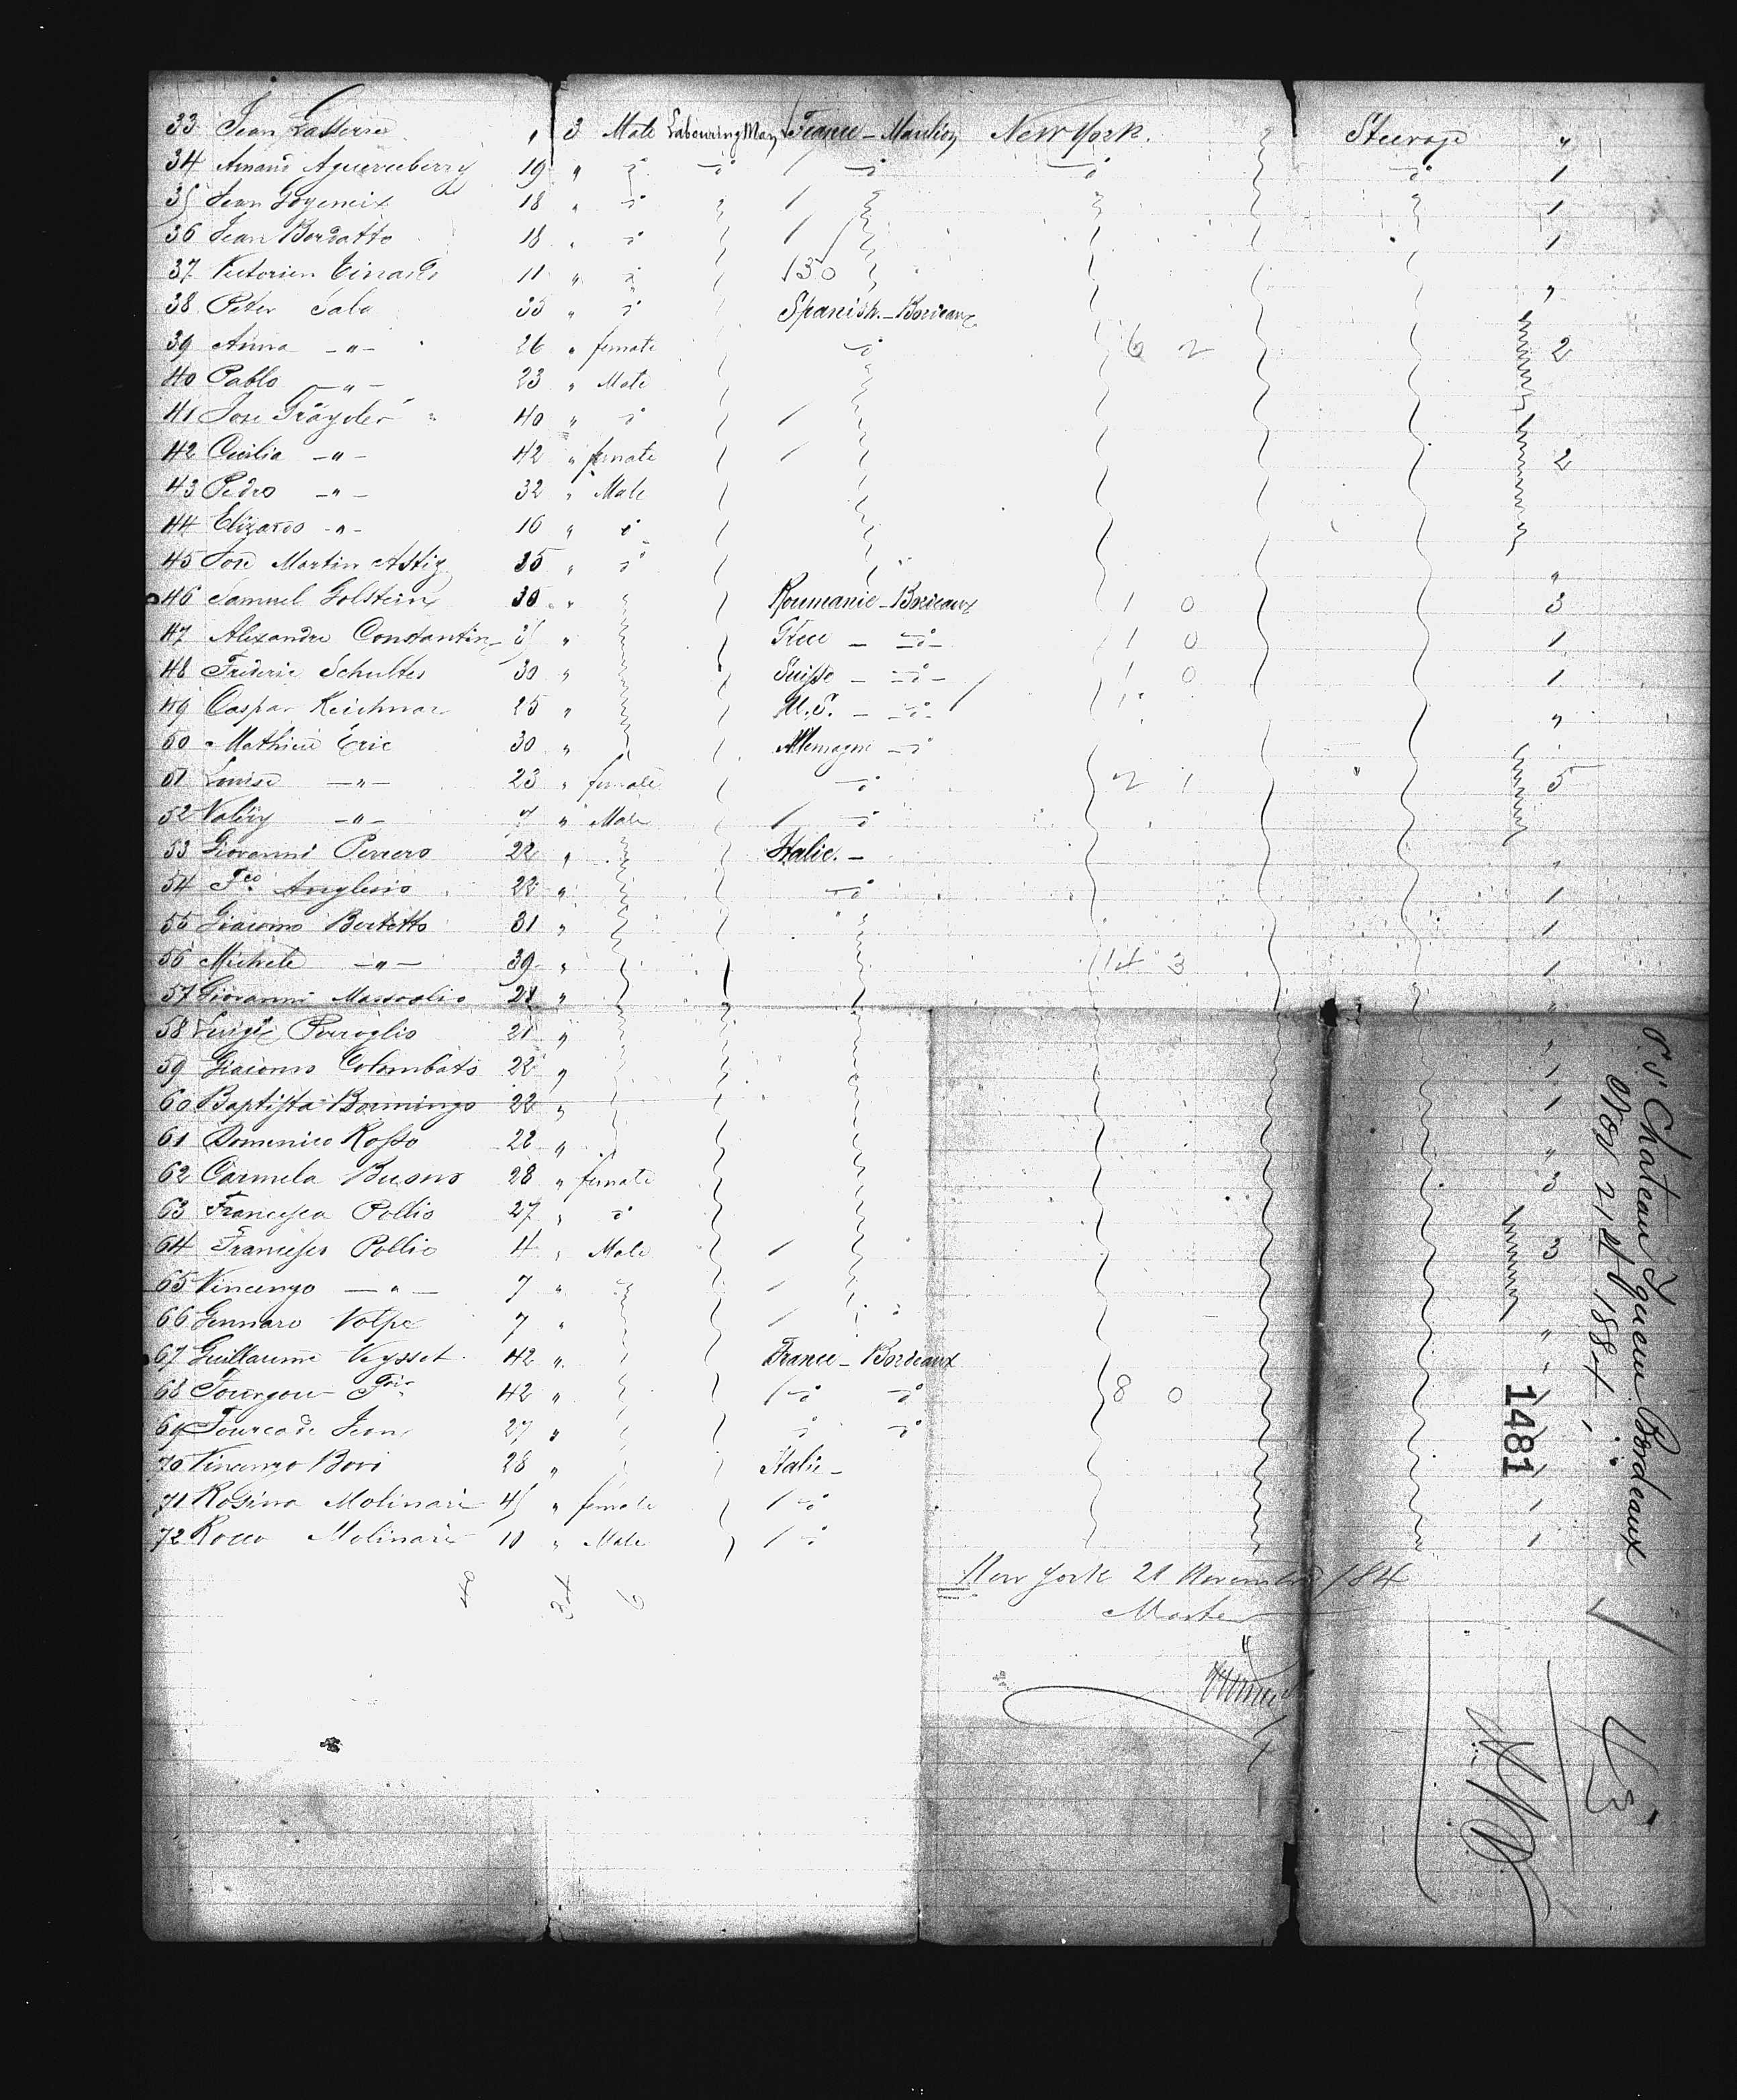 33 Jean Lasserre " 3 Male Labouring Man France - Mauleon New York. Steerage "
34 Arnaud Aguerreberry 19 " d° d° d° d° d° 1
35 Jean Goyeneix 18 " d° 1
36 Jean Bordatto 18 " d° 1
37 Victorien 11 " d° 130 "
38 Peter Sala 35 " d° Spanish - Bordeaux
39 Anna -"- 26 " female d° 6 2 2
40 Pablo -"- 23 " Male
41 Jose 40 " d°
42 Cecilia -"- 42 " female 2
43 Pedro -"- 32 " Male
44 Elizardo -"- 16 " d°
45 José Martin Astiz 35 " d° "
46 Samuel Golstein 30 " Roumanie - Bordeaux 1 0 3
47 Alexandre Constantin 35 " Grece - d° - 1 0 1
48 Frederic Schultes 30 " Suisse - d° - 1 0 1
49 Caspar Keichnar 25 " U.S. - d° - 1 "
50 Mathieu Eric 30 " Allemagne - d°
51 Louise -"- 23 " female d° 2 1 5
52 Valery -"- 7 " Male d°
53 Giovanni Perrero 22 " Italie. - "
54 Fco Anglesio 22 " d° 1
55 Giacomo Bertetto 31 " 1
56 Michele -"- 39 " 14 3 1
57 Giovanni Massoglio 28 " "
58 Luigi Perroglio 21 " "
59 Giacomo Colombato 22 " 1
60 Baptista Bormingo 22 " 1
61 Domenico Rosso 22 " "
62 Carmela Buono 28 " female 3
63 Francesca Pollio 27 " d°
64 Francesco Pollio 4 " Male 3
65 Vincenzo -"- 7 "
66 Gennaro Volpe 7 " "
67 Guillaume Veysset 42 " France - Bordeaux
68 42 " d° d° 8 0 1
69 Fourcade Jean 27 " d° d° 1
70 Vincenzo Bovi 28 " Italie - 1
71 Rosina Molinari 45 " female d° 1
72 Rocco Molinari 10 " Male d° 1
New York 21 November 1884
Master
S.S. Chateau Yquem Bordeaux
Nov 21st 1884
1481
43